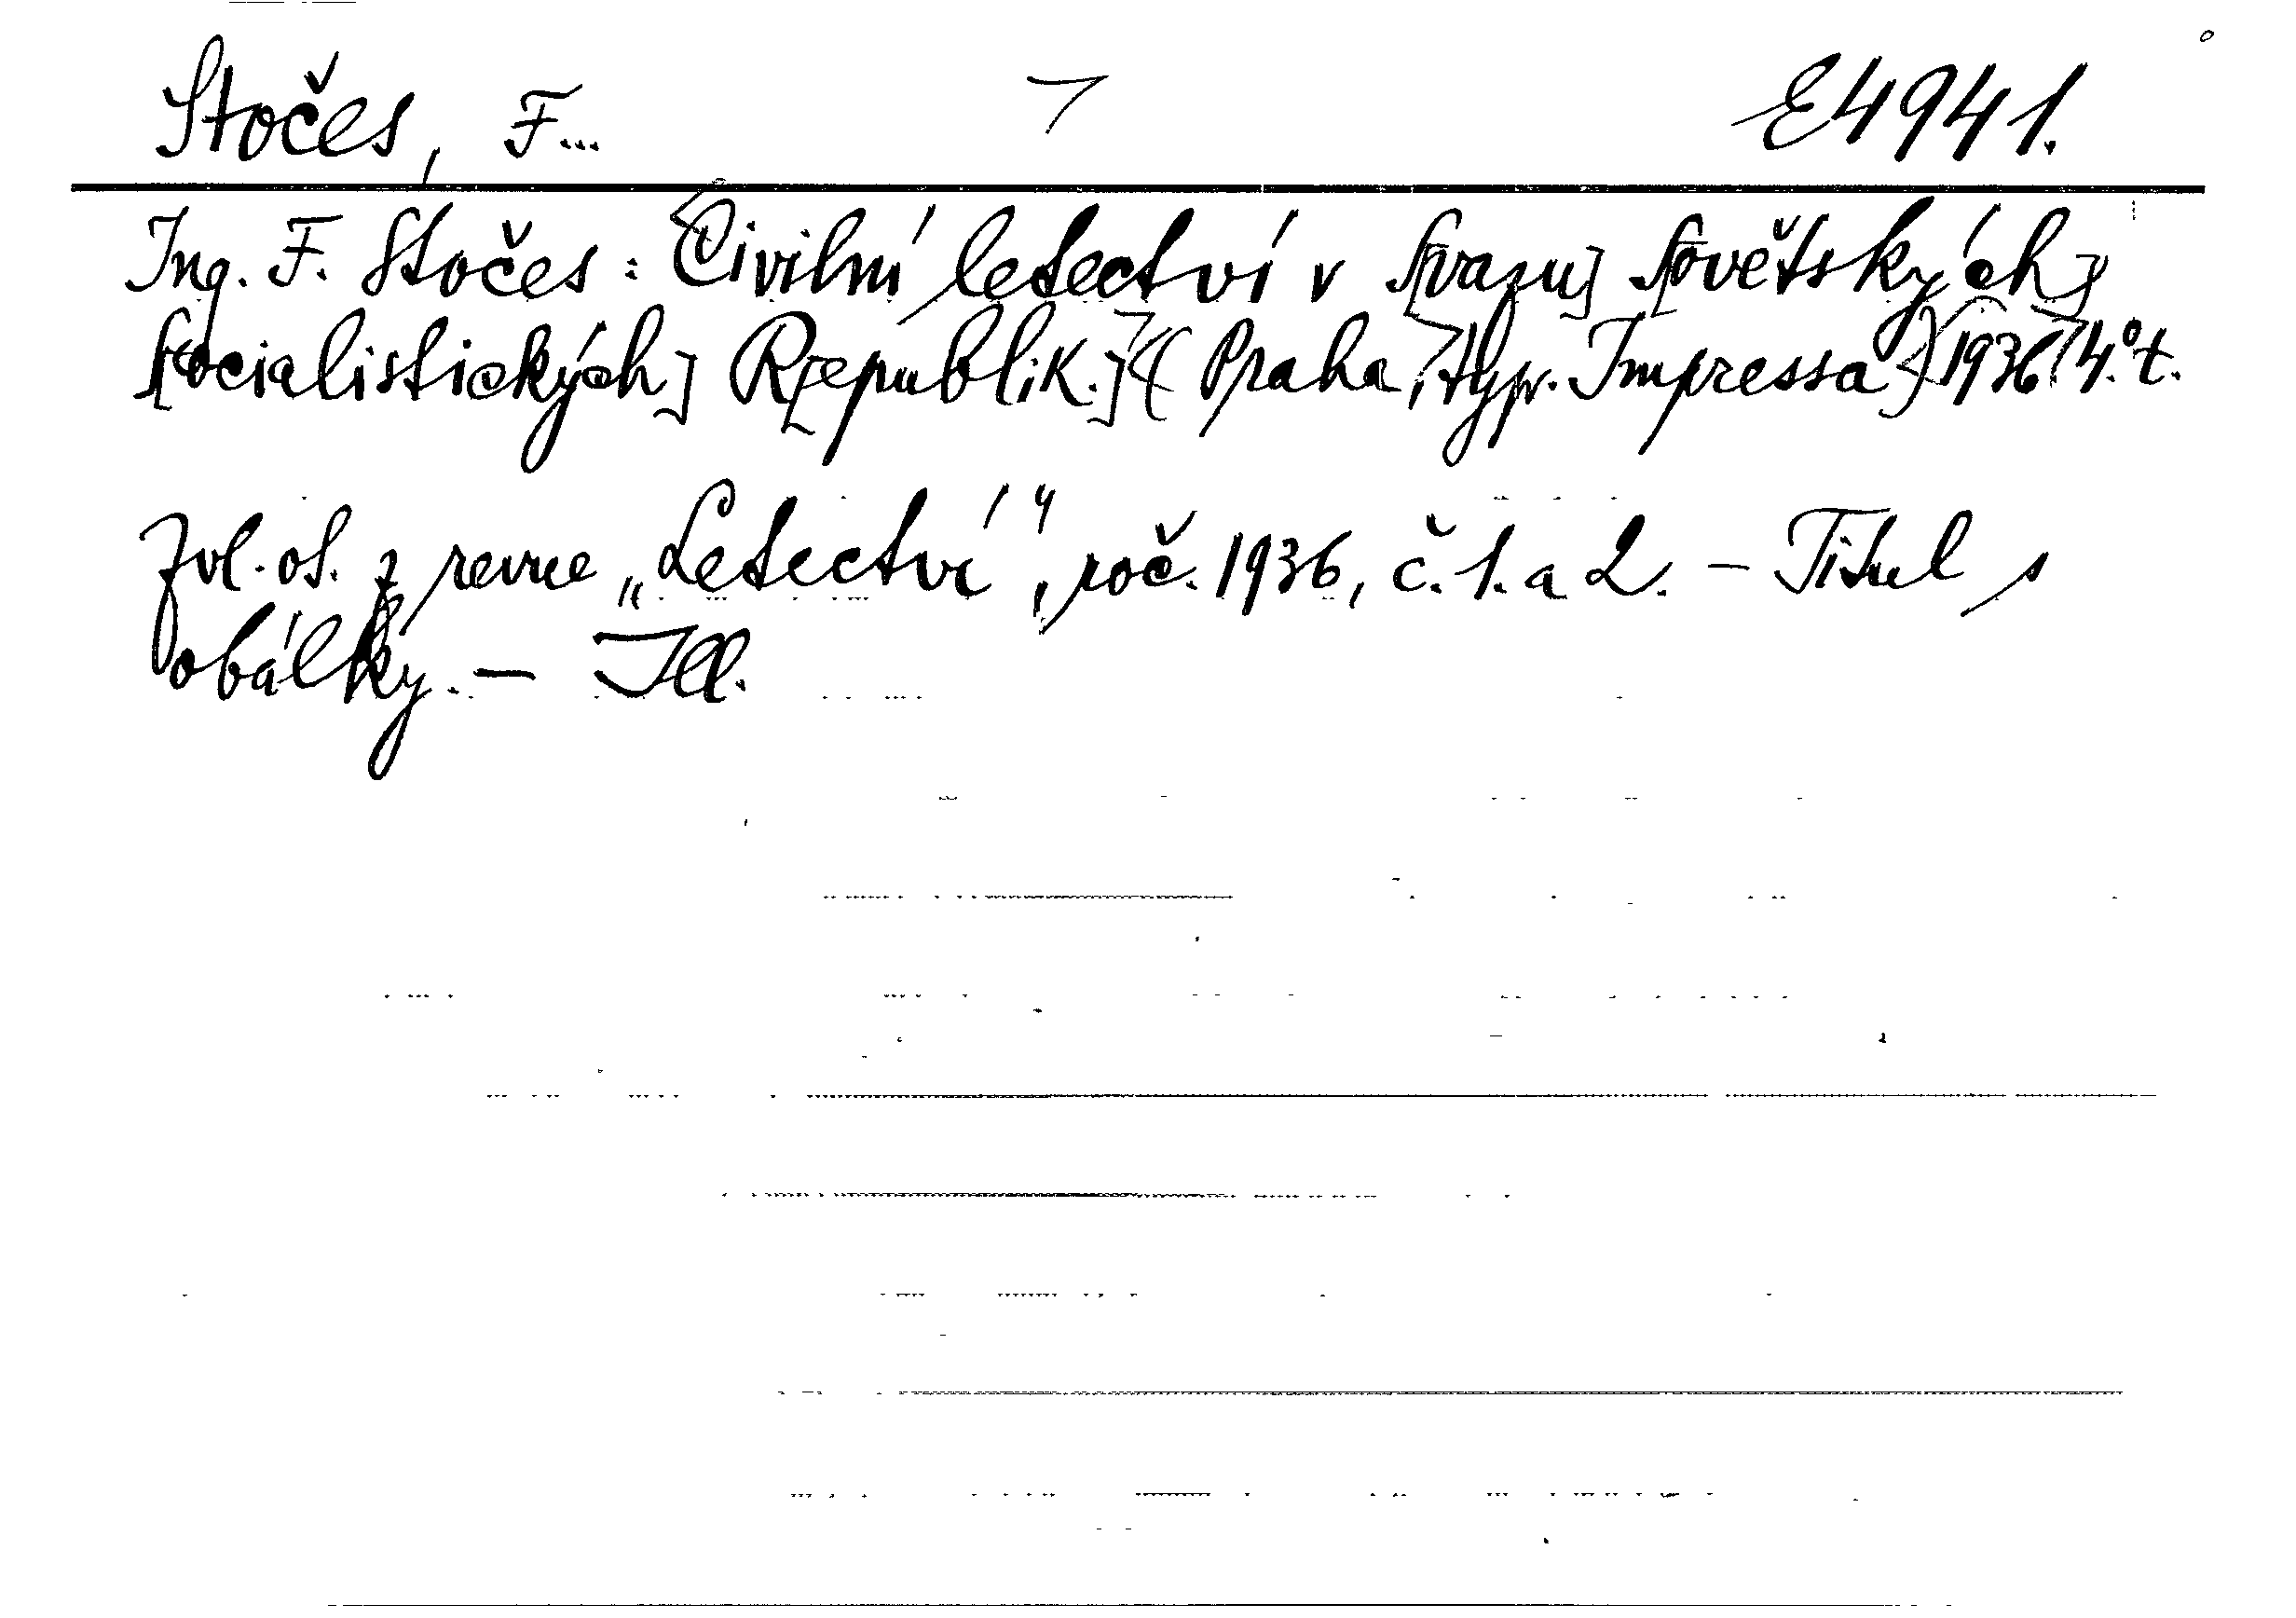 Stočes, F... E4941.
Ing. F. Stočes: Civilní letectví v S[vazu] S[ovětských]
S[ocialistických] R[epublik.] (Praha, typ. Impressa) 1936. 4.° t.
Zvl. ot. z revue „Letectví", roč. 1936, č. 1. a 2. – Titul s
obálky. – Ill.